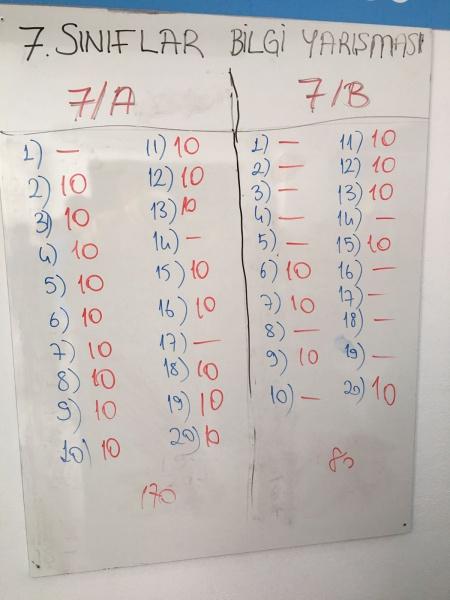 7. SINIFLAR BİLGİ YARIŞMASI
7/A
1) —
2) 10
3) 10
4) 10
5) 10
6) 10
7) 10
8) 10
9) 10
10) 10
11) 10
12) 10
13) 10
14) —
15) 10
16) 10
17) —
18) 10
19) 10
20) 10
170
7/B
1) —
2) —
3) —
4) —
5) —
6) 10
7) 10
8) —
9) 10
10) —
11) 10
12) 10
13) 10
14) —
15) 10
16) —
17) —
18) —
19) —
20) 10
80